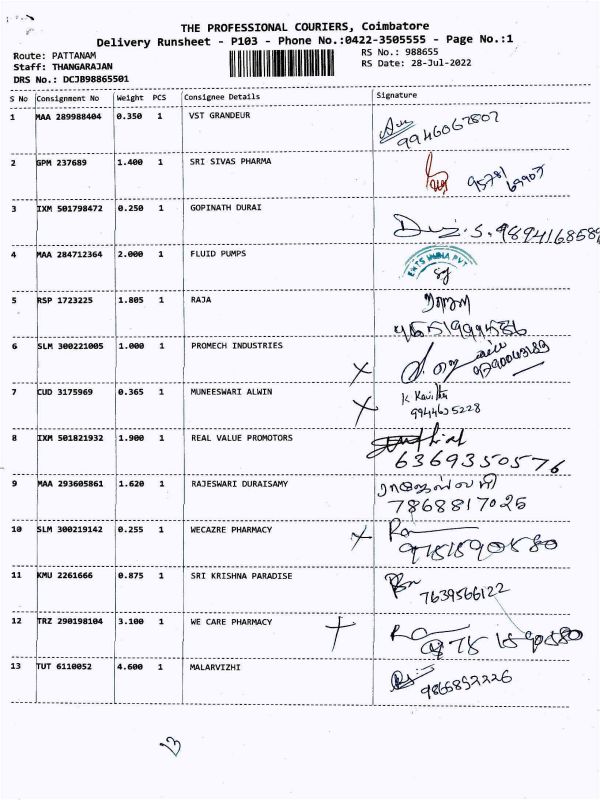 THE PROFESSIONAL COURIERS, Coimbatore
Delivery Runsheet - P103 - Phone No.:0422-3505555 - Page No.:1
Route: PATTANAM RS No.: 988655
Staff: THANGARAJAN RS Date: 28-Jul-2022
DRS No.: DCJB98865501
S No Consignment No Weight PCS Consignee Details Signature
1 MAA 289988404 0.350 1 VST GRANDEUR
9946067807
2 GPM 237689 1.400 1 SRI SIVAS PHARMA
3 IXM 501798472 0.250 1 GOPINATH DURAI
4 MAA 284712364 2.000 1 FLUID PUMPS
5 RSP 1723225 1.805 1 RAJA
6 SLM 300221005 1.000 1 PROMECH INDUSTRIES
7 CUD 3175969 0.365 1 MUNEESWARI ALWIN
K Kavitha
9944625228
8 IXM 501821932 1.900 1 REAL VALUE PROMOTORS
6369350576
9 MAA 293605861 1.620 1 RAJESWARI DURAISAMY
ராஜேஸ்வரி
7868817025
10 SLM 300219142 0.255 1 WECAZRE PHARMACY
11 KMU 2261666 0.875 1 SRI KRISHNA PARADISE
7639566122
12 TRZ 290198104 3.100 1 WE CARE PHARMACY
13 TUT 6110052 4.600 1 MALARVIZHI
9866892226